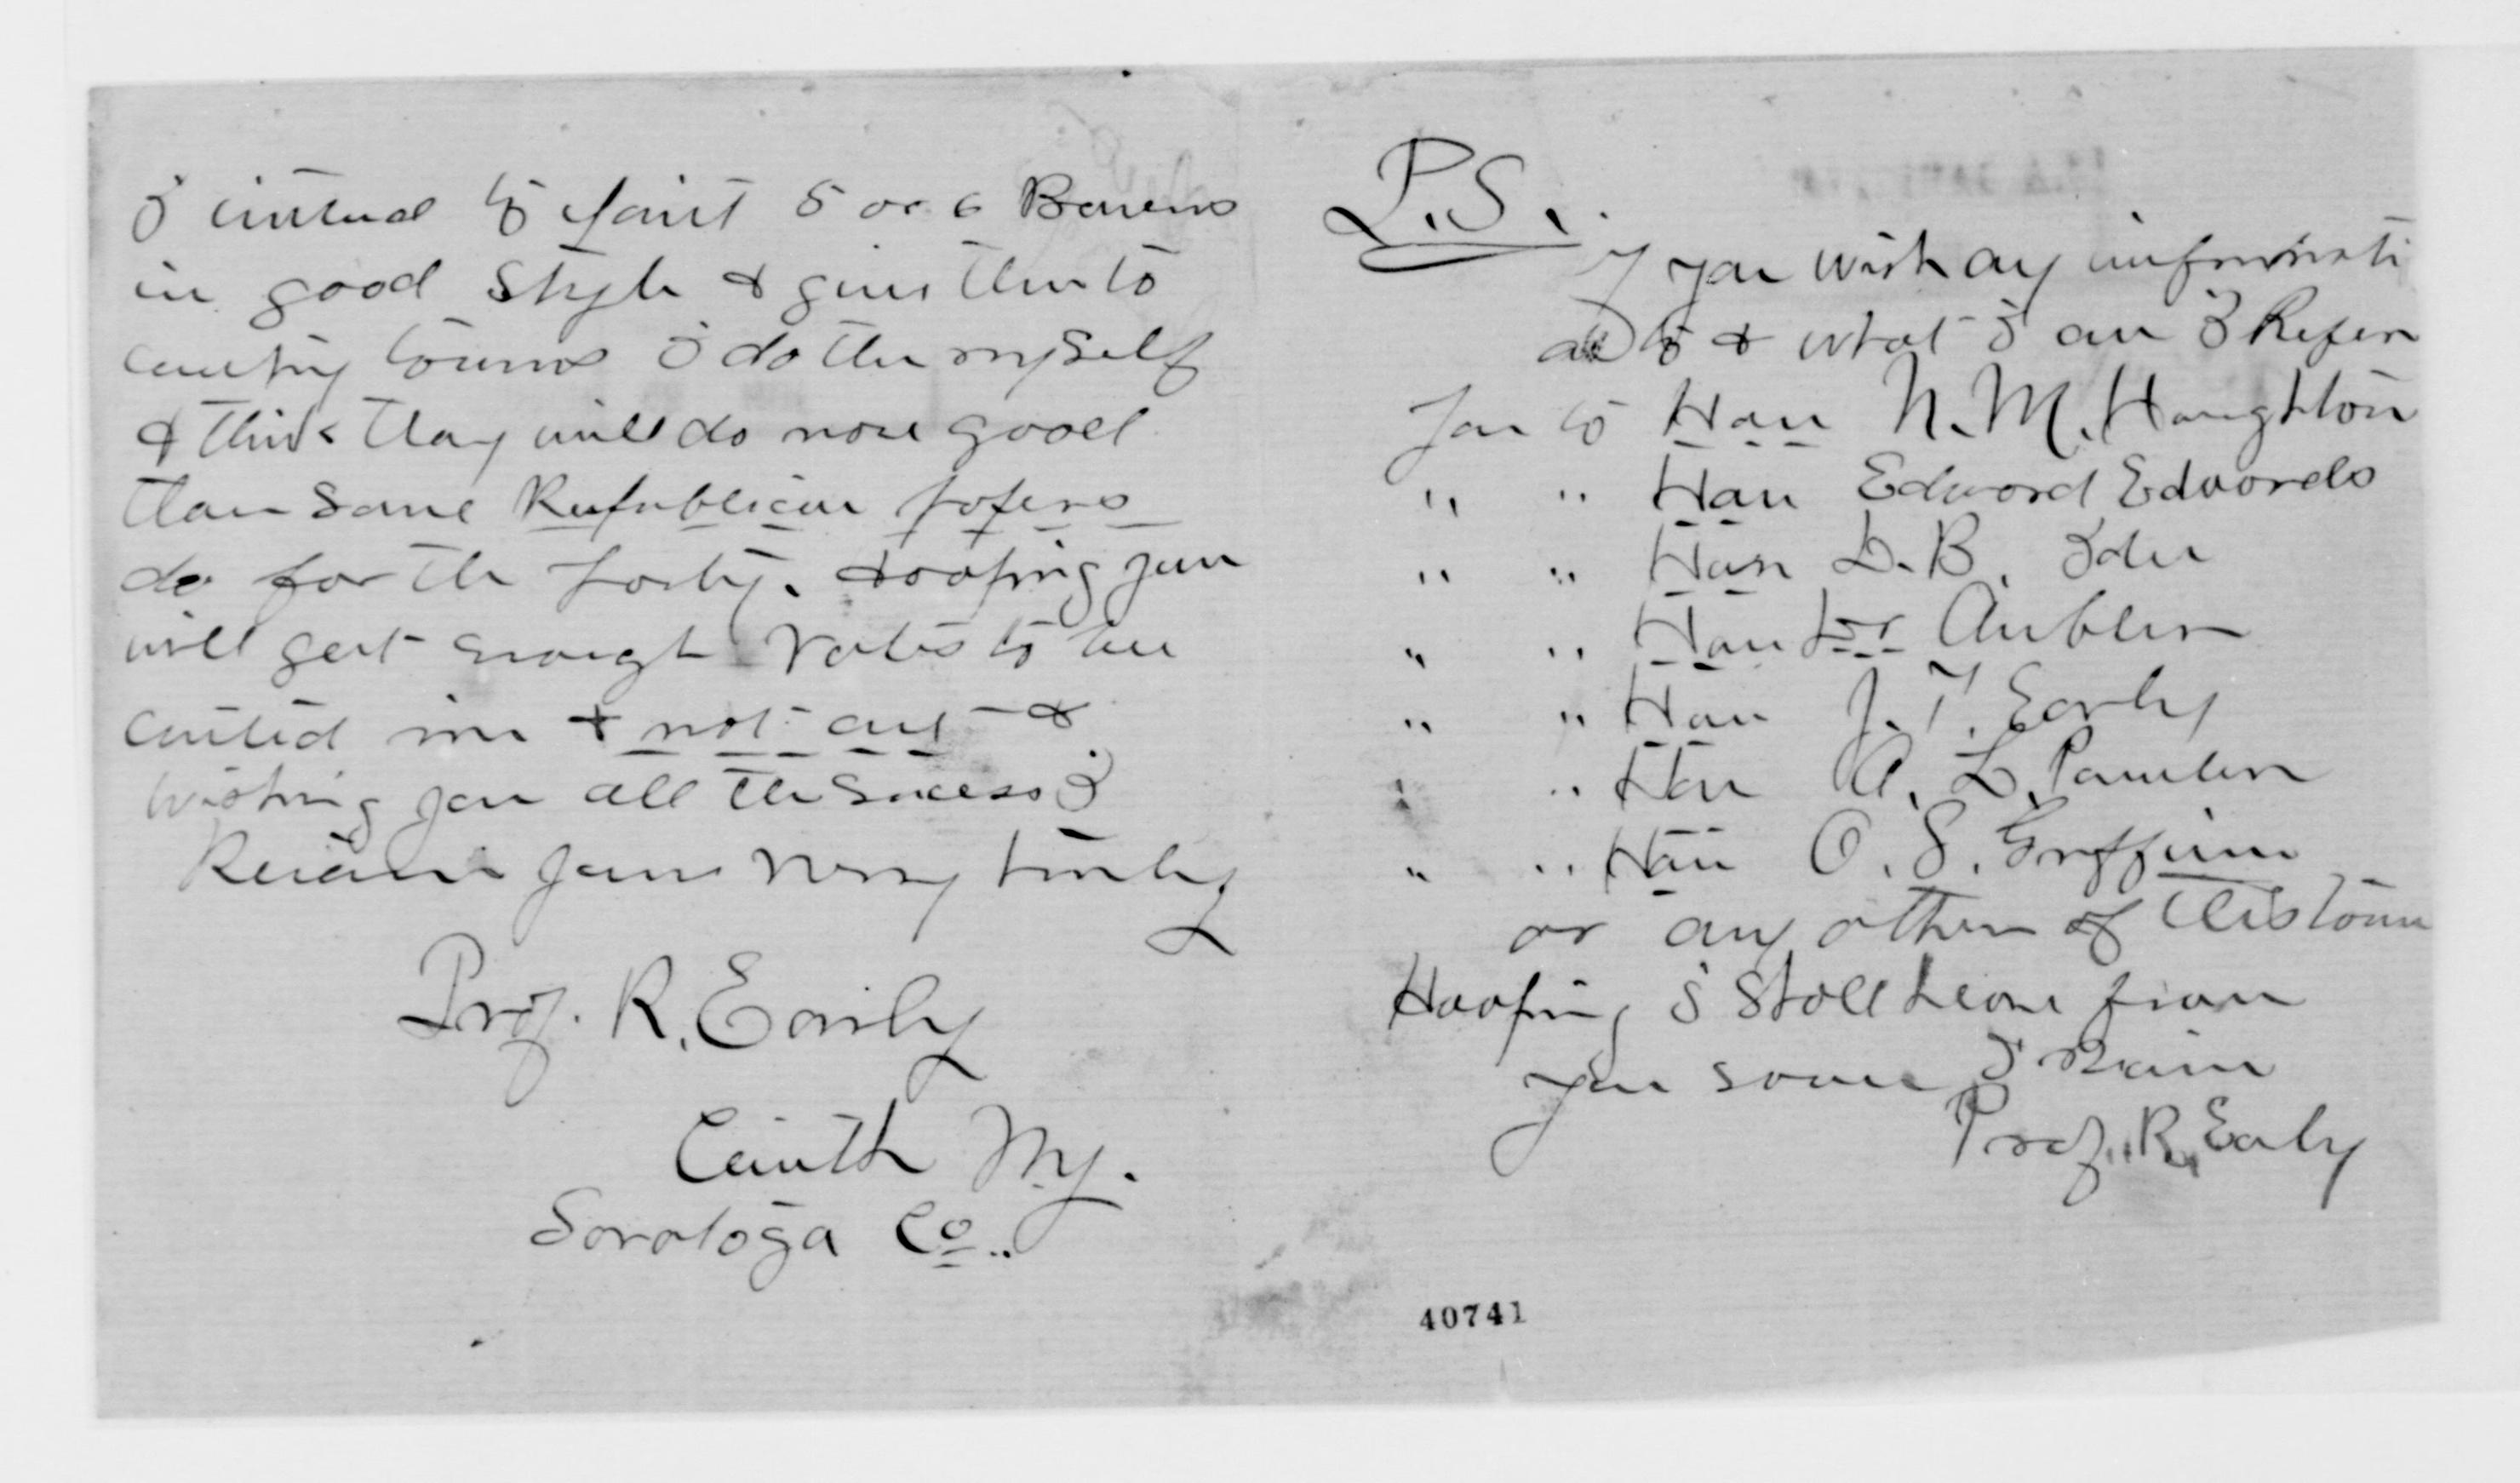 I intend to paint 5 or 6 Baners
in good Style & give them to
country towns I do the myself
& think thay will do more good
than some Republican papers
do for the party. & hoping you
will get enough votes to be
counted in & not out &
wishing you all the sucess I
Remain yours very truly
Prof. R. Early
Corinth N.Y.
Saratoga Co..
P.S.
If you wish any informati
as to & what I am I Refer
you to Hon N. M. Houghton
" " Hon Edward Edwards
" " Hon D. B. Ide
" " Hon Dr
" " Hon J. T. Early
" " Hon A. L.
" " Hon O. S. Griffin
or any other of this town
Hooping I shall hear from
you soon I Remain
Prof. R. Early
40741